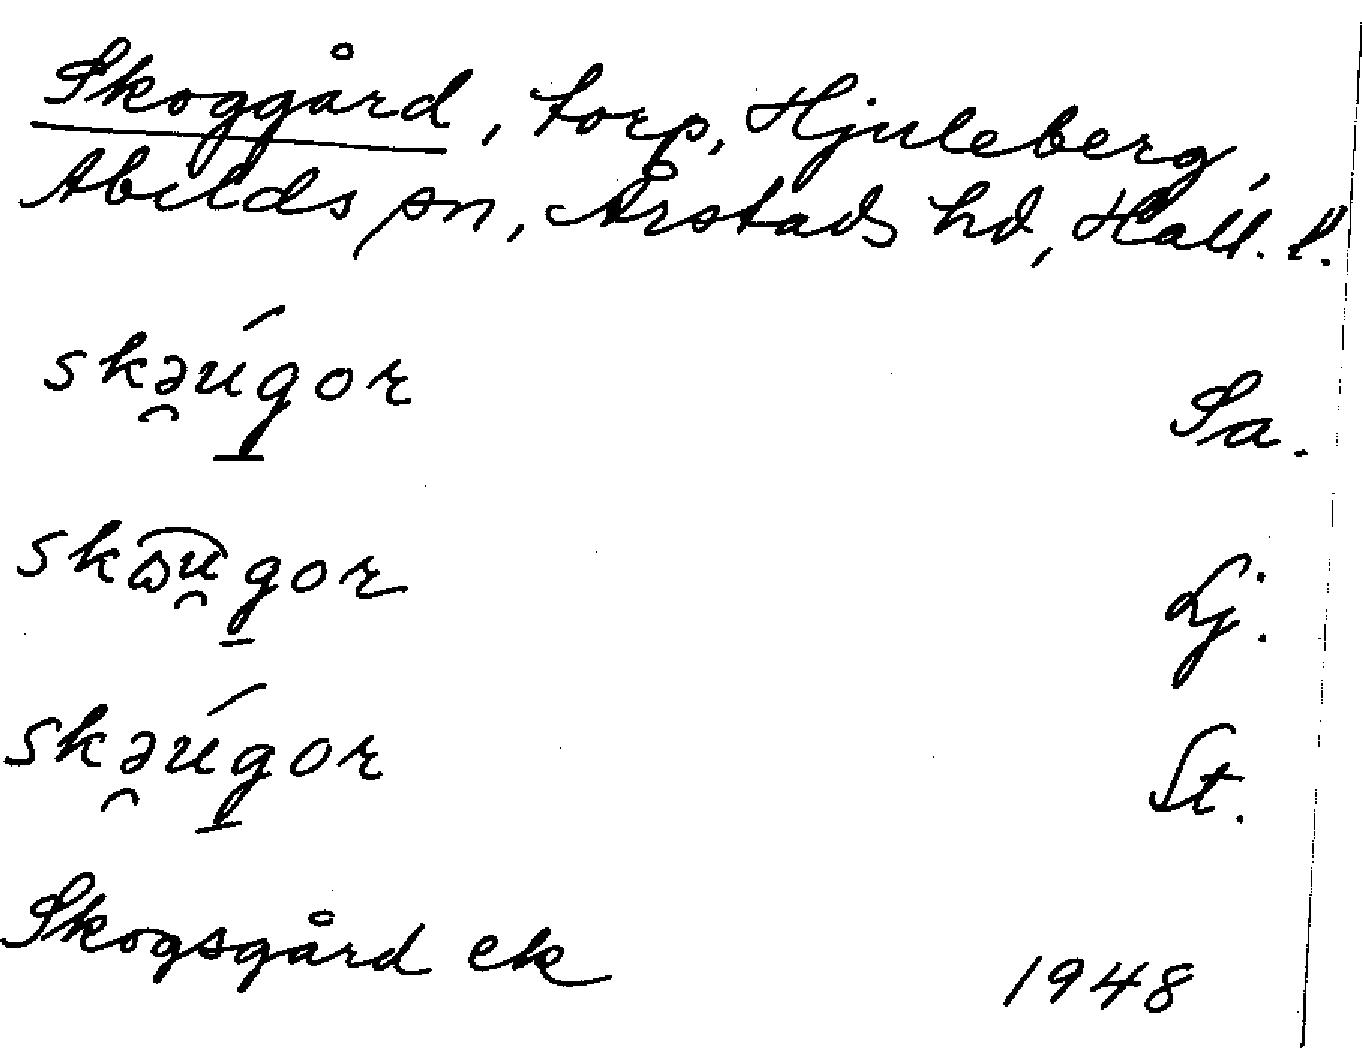 Skoggård, torp, Hjuleberg,
Abilds sn, Årstads hd, Hall. l.
skə̯úgor Sa.
skꙍu̯gor Lj.
skə̯úgor St.
Skogsgård ek 1948